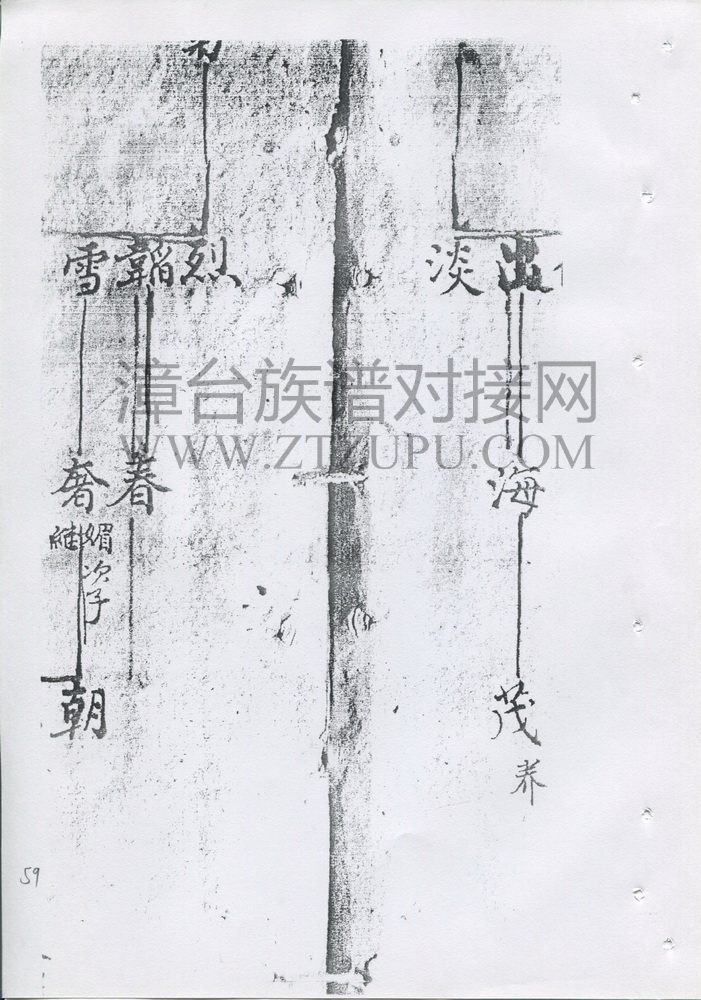 淡 出
海
茂
养
雪 韜 烈
奢 春
媚次子
朝
漳台族谱对接网
WWW.ZTZUPU.COM
59